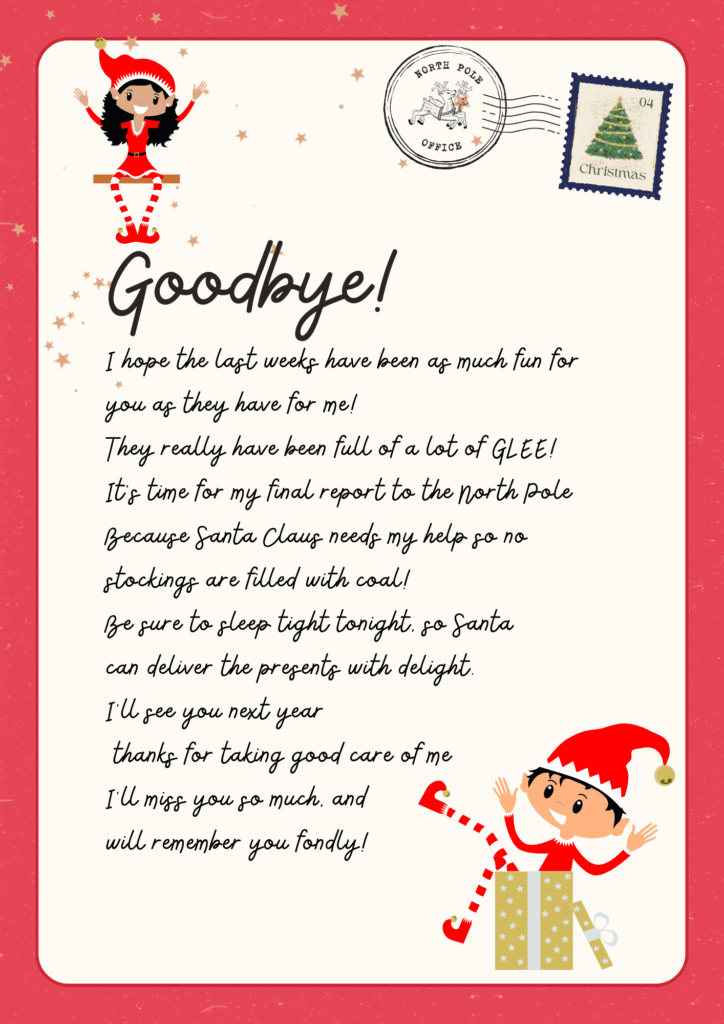 NORTH POLE
OFFICE
04
Christmas
Goodbye!
I hope the last weeks have been as much fun for
you as they have for me!
They really have been full of a lot of GLEE!
It's time for my final report to the North Pole
Because Santa Claus needs my help so no
stockings are filled with coal!
Be sure to sleep tight tonight, so Santa
can deliver the presents with delight.
I'll see you next year
thanks for taking good care of me
I'll miss you so much, and
will remember you fondly!